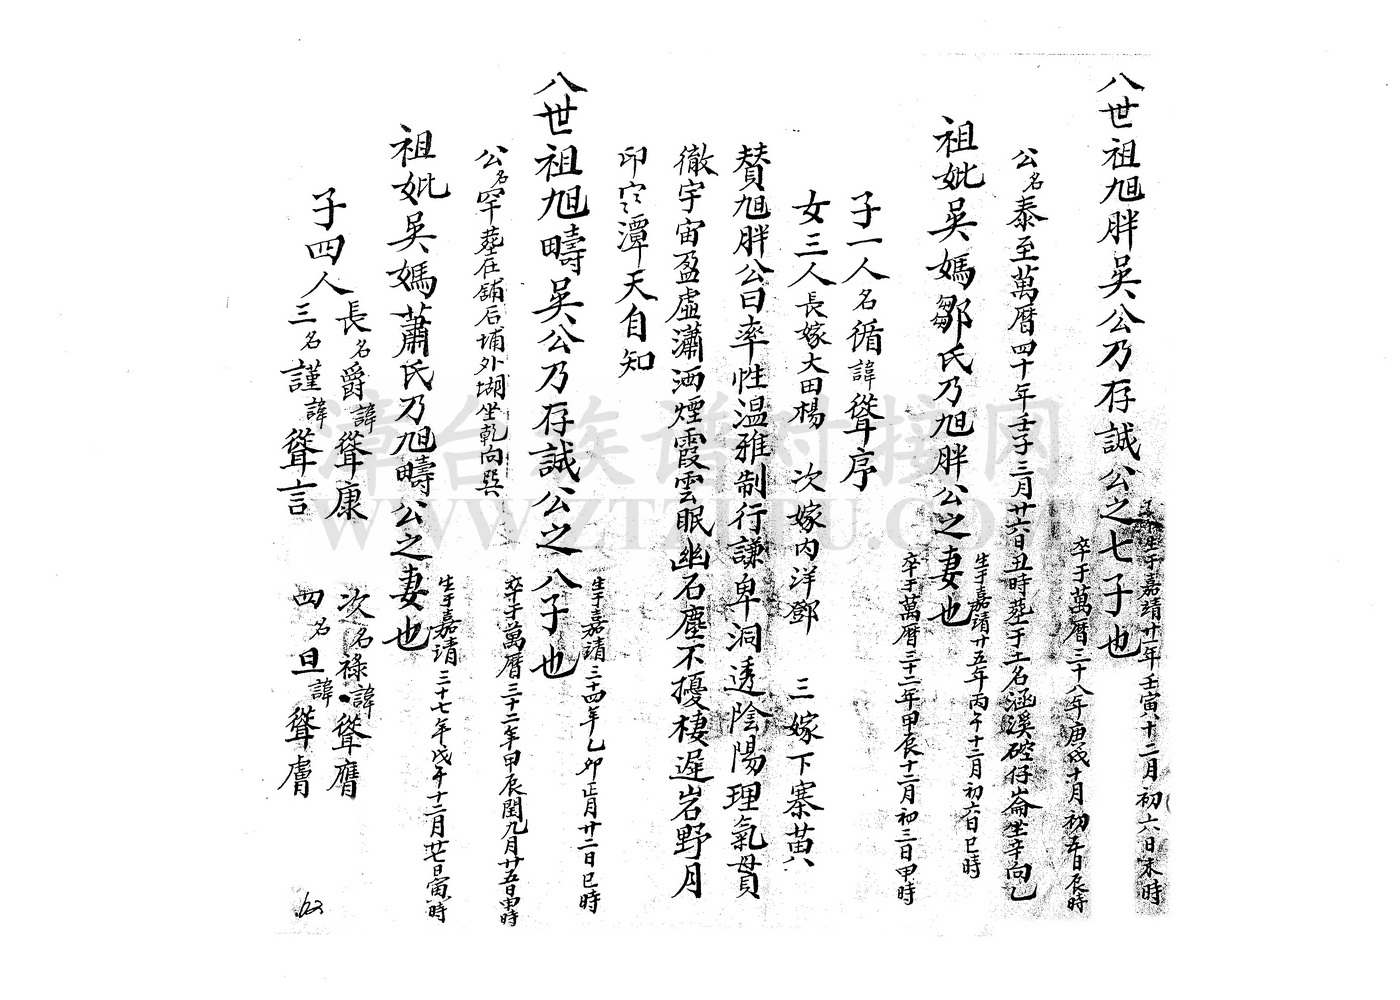 八世祖旭胖吳公乃存誠公之七子也
生于嘉靖廿一年壬寅十二月初六日未時
卒于萬曆三十八年庚戌十月初五日辰時
公名泰至萬曆四十年壬子三月廿六日丑時葬于土名涵溪硿仔崙坐辛向乙
祖妣吳媽鄒氏乃旭胖公之妻也
生于嘉靖廿五年丙午十二月初六日巳時
卒于萬曆三十二年甲辰十二月初三日申時
子一人名循諱聳序
女三人長嫁大田楊 次嫁內洋鄧 三嫁下寨黃
贊旭胖公曰率性溫雅制行謙卑洞透陰陽理氣貫
徹宇宙盈虛瀟洒煙霞雲眠幽石塵不擾棲遲岩野月
印空潭天自知
八世祖旭疇吳公乃存誠公之八子也
生于嘉靖三十四年乙卯正月廿二日巳時
卒于萬曆三十二年甲辰閏九月廿五日申時
公名罕葬在舖后埔外塘坐乾向巽
祖妣吳媽蕭氏乃旭疇公之妻也
生于嘉靖三十七年戊午十二月廿七日寅時
子四人
長名爵諱聳康 次名祿諱聳膺
三名謹諱聳言 四名旦諱聳膚
漳台族谱对接网
WWW.ZTZUPU.COM